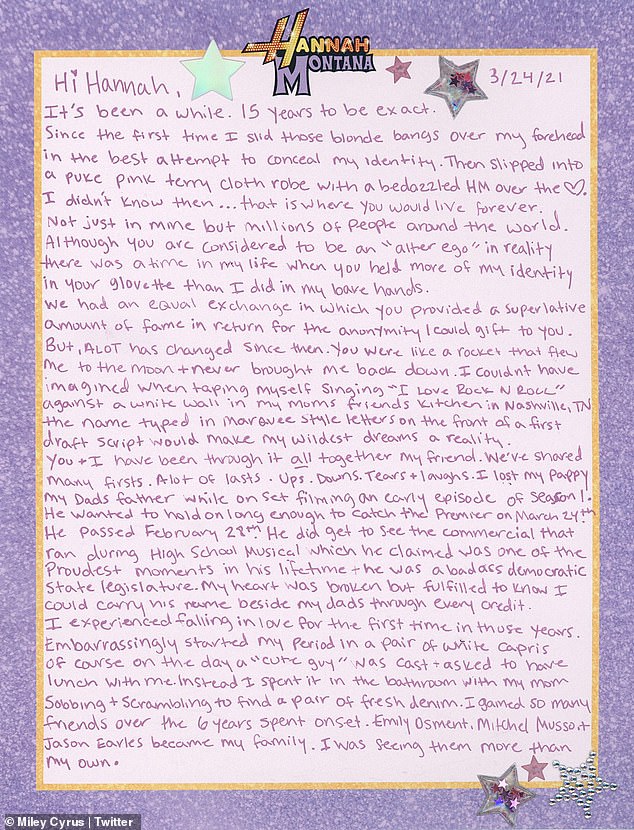 HANNAH
MONTANA
Hi Hannah,
3/24/21
It's been a while. 15 years to be exact.
Since the first time I slid those blonde bangs over my forehead
in the best attempt to conceal my identity. Then slipped into
a puke pink terry cloth robe with a bedazzled HM over the ♡.
I didn't know then... that is where you would live forever.
Not just in mine but millions of people around the world.
Although you are considered to be an "alter ego" in reality
there was a time in my life when you held more of my identity
in your glovette than I did in my bare hands.
We had an equal exchange in which you provided a superlative
amount of fame in return for the anonymity I could gift to you.
But, ALOT has changed since then. You were like a rocket that flew
me to the moon + never brought me back down. I couldn't have
imagined when taping myself singing "I LOVE ROCK N ROLL"
against a white wall in my moms friends kitchen in Nashville, TN
the name typed in marquee style letters on the front of a first
draft script would make my wildest dreams a reality.
You + I have been through it all together my friend. We've shared
many firsts. Alot of lasts. Ups. Downs. Tears + laughs. I lost my Pappy
my Dads father while on set filming an early episode of season 1.
He wanted to hold on long enough to catch the Premier on March 24th
He passed February 28th He did get to see the commercial that
ran during High School Musical which he claimed was one of the
Proudest moments in his lifetime + he was a badass democratic
state legislature. My heart was broken but fulfilled to know I
could carry his name beside my dads through every credit.
I experienced falling in love for the first time in those years.
Embarrassingly started my period in a pair of white capris
of course on the day a "cute guy" was cast + asked to have
lunch with me. Instead I spent it in the bathroom with my mom
Sobbing + Scrambling to find a pair of fresh denim. I gained so many
friends over the 6 years spent on set. Emily Osment, Mitchel Musso +
Jason Earles became my family. I was seeing them more than
my own.
© Miley Cyrus | Twitter